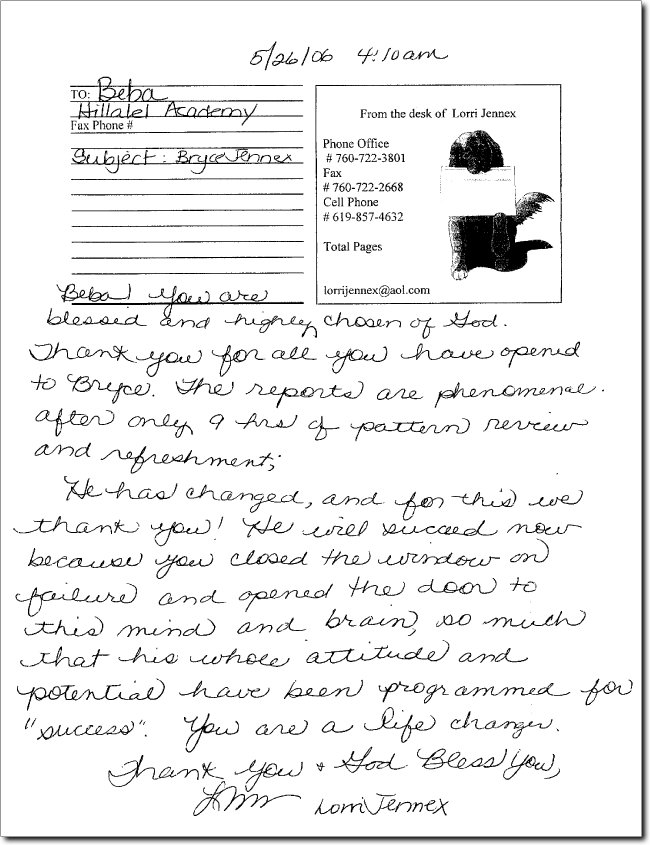 5/26/06 4:10am
TO: Beba
Hillalel Academy
Fax Phone #
Subject: Bryce Jennex
From the desk of Lorri Jennex
Phone Office
# 760-722-3801
Fax
# 760-722-2668
Cell Phone
# 619-857-4632
Total Pages
lorrijennex@aol.com
Beba! you are
blessed and highly chosen of God.
Thank you for all you have opened
to Bryce. The reports are phenomenal.
after only 9 hrs of pattern review
and refreshment;
He has changed, and for this we
thank you! He will succeed now
because you closed the window on
failure and opened the door to
this mind and brain, so much
that his whole attitude and
potential have been programmed for
"success". You are a life changer.
Thank You & God Bless You,
Lorri Jennex